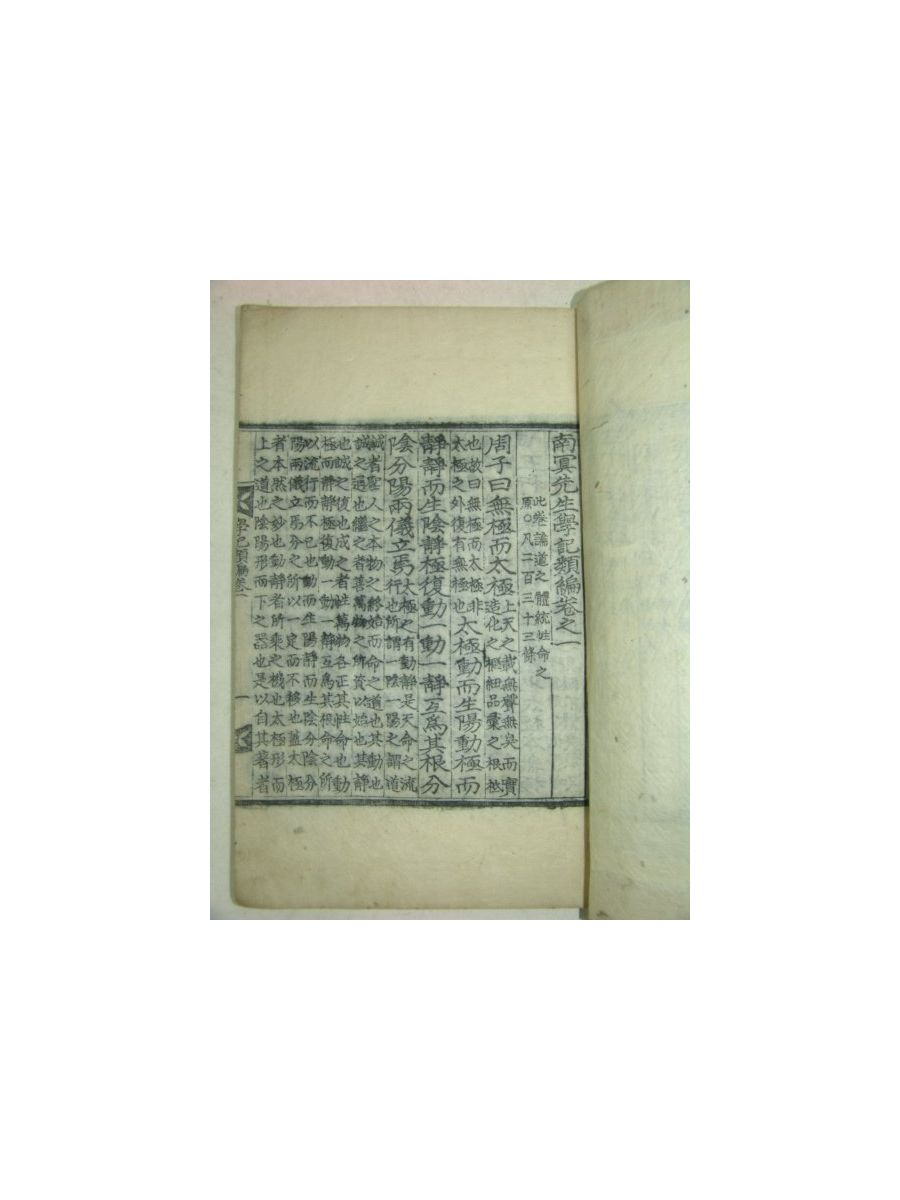 南冥先生學記類編卷之一
此卷論道之體統性命之
原○凡二百三十三條
周子曰無極而太極上天之載無聲無臭而實
造化之樞紐品彙之根柢
也故曰無極而太極非
太極之外復有無極也太極動而生陽動極而
靜靜而生陰靜極復動一動一靜互爲其根分
陰分陽兩儀立焉太極之有動靜是天命之流
行也所謂一陰一陽之謂道
誠者聖人之本物之終始而命之道也其動也
誠之通也繼之者善萬物之所資以始也其靜
也誠之復也成之者性萬物各正其性命也動
極而靜靜極復動一動一靜互爲其根命之所
以流行而不已也動而生陽靜而生陰分陰分
陽兩儀立焉分之所以一定而不移也蓋太極
者本然之妙也動靜者所乘之機也太極形而
上之道也陰陽形而下之器也是以自其著者
學記類編卷一 一